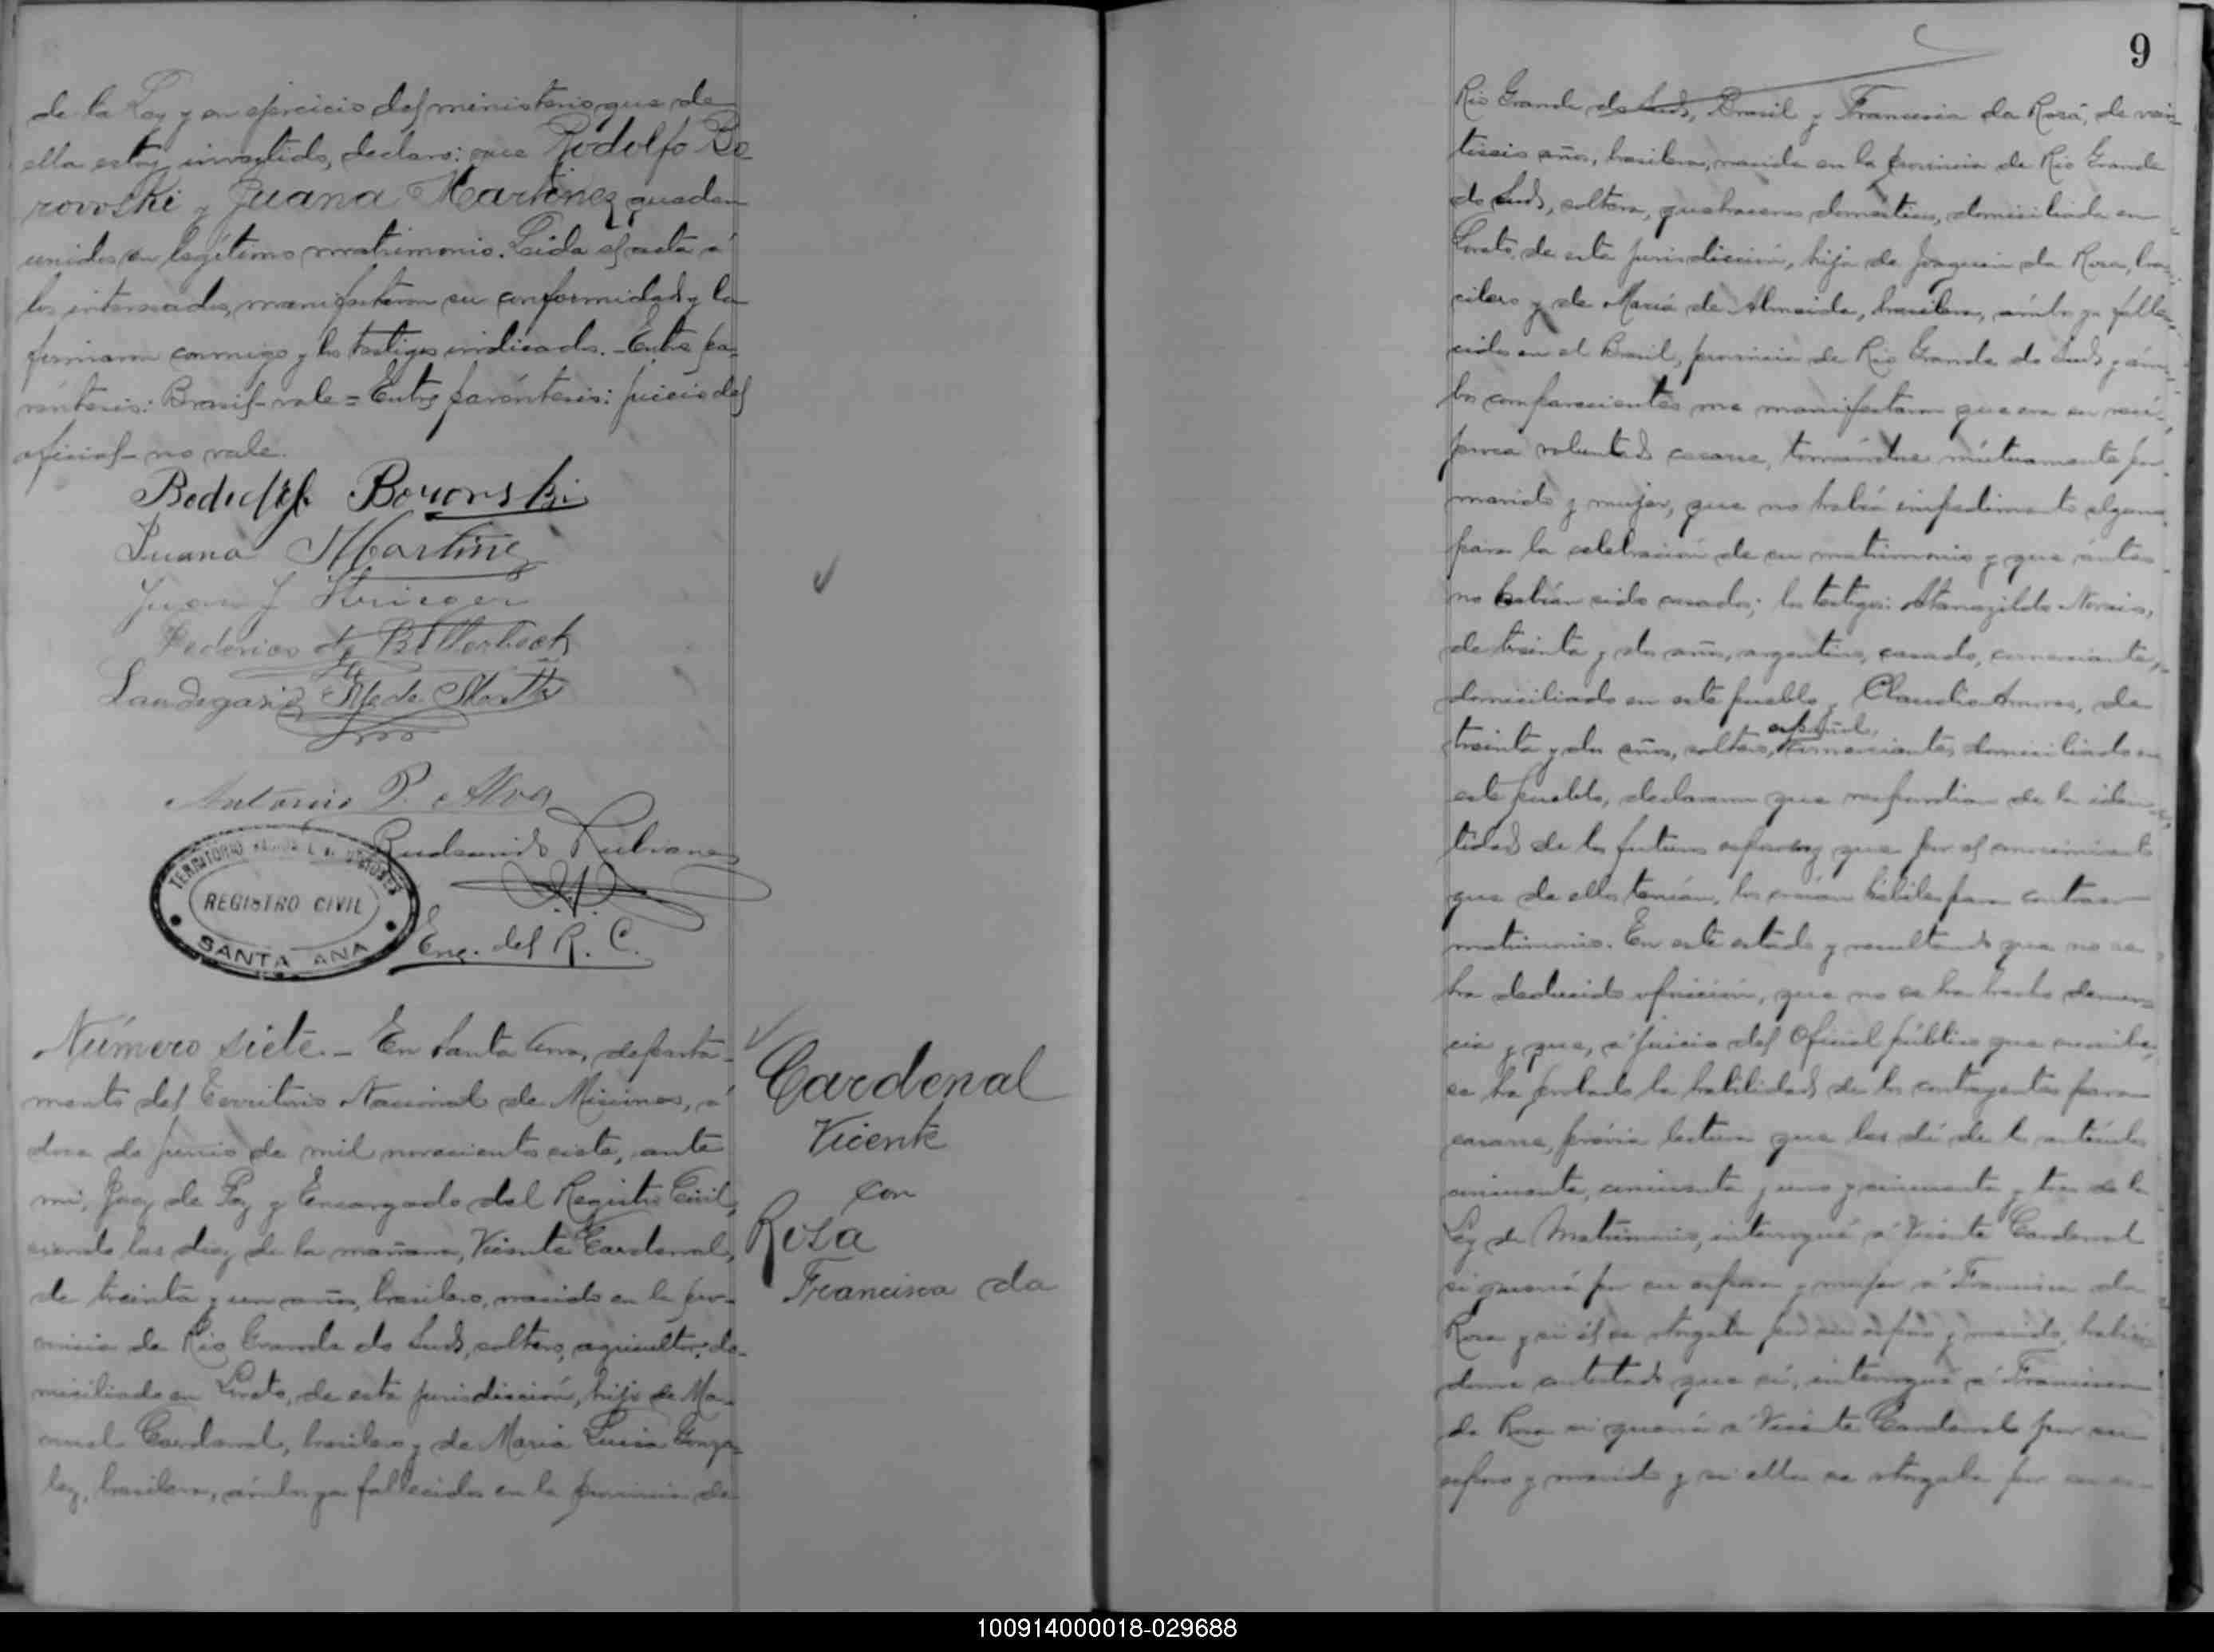 de la Ley y en ejercicio del ministerio que de
ella estoy investido, declaro: que Rodolfo Bo-
rovoski y Juana Martinez quedan
unidos en legítimo matrimonio. Leida el acta á
los interesados, manifestaron su conformidad y la
firmaron conmigo y los testigos indicados. - Entre pa-
réntesis: Brasil - vale = Entre paréntesis: juicio del
oficial - no vale.
Borovski
Juana Martinez
Juan J
Federico de
Antonio P. Alva
Rudecindo Lubiana
Enc. del R. C.
TERRITORIO
REGISTRO CIVIL
SANTA ANA
Número siete. - En Santa Ana, departa-
mento del Territorio Nacional de Misiones, á
doce de junio de mil novecientos siete, ante
mi, Juez de Paz y Encargado del Registro Civil,
siendo las diez de la mañana, Vicente Cardenal,
de treinta y un años, brasilero, nacido en la pro-
vincia de Rio Grande do Sud, soltero, agricultor, do-
miciliado en Loreto, de esta jurisdicción, hijo de Ma-
nuel Cardenal, brasilero y de María Lucia Gonza-
lez, brasilera, ámbos ya fallecidos en la provincia de
Cardenal
Vicente
con
Rosa
Francisca da
9
Rio Grande do Sud, Brasil y Francisca da Rosa, de vein-
tiseis años, brasilera, nacida en la provincia de Rio Grande
do Sud, soltera, quehaceres domésticos, domiciliada en
Loreto, de esta jurisdicción, hija de Joaquin da Rosa, bra-
silero y de María de Almeida, brasilera, ámbos ya falle-
cidos en el Brasil, provincia de Rio Grande do Sud y ám-
bos comparecientes me manifestaron que era su recí-
proca voluntad casarse, tomándose mútuamente por
marido y mujer, que no había impedimento alguno
para la celebración de su matrimonio y que ántes
no habían sido casados; los testigos: Atanagildo Novais,
de treinta y dos años, argentino, casado, comerciante,
domiciliado en este pueblo y Claudio Amores, de
treinta y dos años, soltero, español, comerciante, domiciliado en
este pueblo, declararon que respondian de la iden-
tidad de los futuros esposos y que por el conocimiento
que de ellos tenían, los creían hábiles para contraer
matrimonio. En este estado y resultando que no se
ha deducido oposición, que no se ha hecho denun-
cia y que, á juicio del Oficial público que suscribe,
se ha probado la habilidad de los contrayentes para
casarse, prévia lectura que les dí de los artículos
cincuenta, cincuenta y uno y cincuenta y tres de la
Ley de Matrimonio, interrogué á Vicente Cardenal
si quería por su esposa y mujer á Francisca da
Rosa y si él se otorgaba por su esposo y marido, habién-
dome contestado que sí, interrogué á Francisca
da Rosa si quería á Vicente Cardenal por su
esposo y marido y si ella se otorgaba por su es-
100914000018-029688